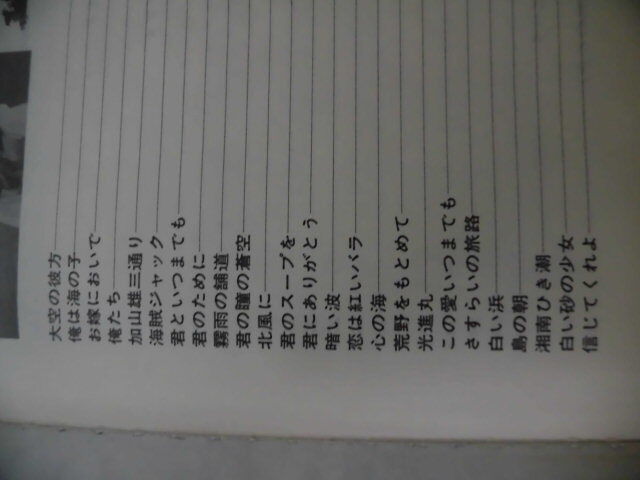 大空の彼方
俺は海の子
お嫁においで
俺たち
加山雄三通り
海賊ジャック
君といつまでも
君のために
霧雨の舗道
君の瞳の蒼空
北風に
君のスープを
君にありがとう
暗い波
恋は紅いバラ
心の海
荒野をもとめて
光進丸
この愛いつまでも
さすらいの旅路
白い浜
島の朝
湘南ひき潮
白い砂の少女
信じてくれよ